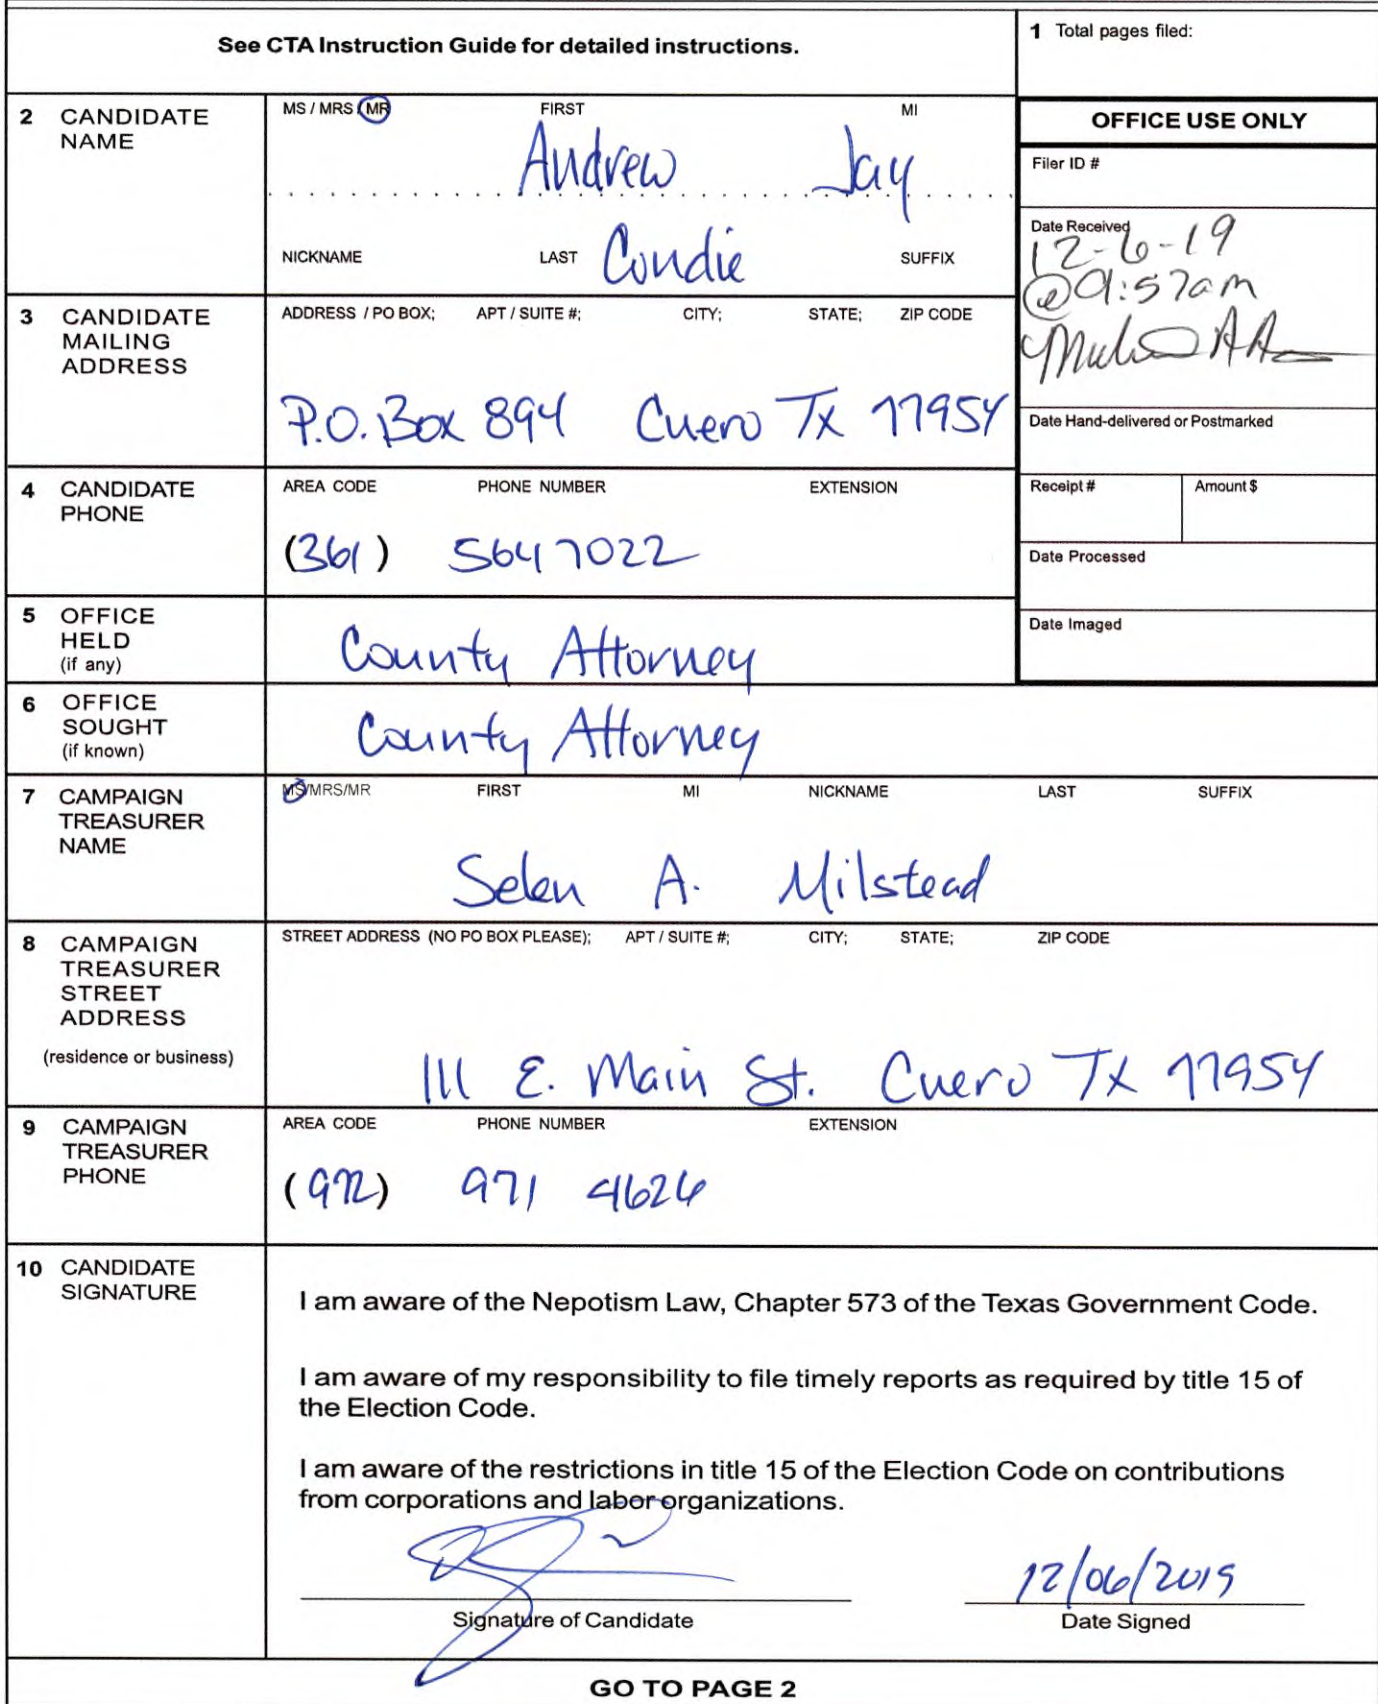 See CTA Instruction Guide for detailed instructions.
1 Total pages filed:
2 CANDIDATE NAME
MS / MRS / MR FIRST MI
Andrew Jay
NICKNAME LAST Condie SUFFIX
OFFICE USE ONLY
Filer ID #
Date Received
12-6-19
@9:57am
Date Hand-delivered or Postmarked
Receipt # Amount $
Date Processed
Date Imaged
3 CANDIDATE MAILING ADDRESS
ADDRESS / PO BOX; APT / SUITE #; CITY; STATE; ZIP CODE
P.O. Box 894 Cuero Tx 77954
4 CANDIDATE PHONE
AREA CODE PHONE NUMBER EXTENSION
(361) 564 7022
5 OFFICE HELD (if any)
County Attorney
6 OFFICE SOUGHT (if known)
County Attorney
7 CAMPAIGN TREASURER NAME
MS/MRS/MR FIRST MI NICKNAME LAST SUFFIX
Selen A. Milstead
8 CAMPAIGN TREASURER STREET ADDRESS
(residence or business)
STREET ADDRESS (NO PO BOX PLEASE); APT / SUITE #; CITY; STATE; ZIP CODE
111 E. Main St. Cuero Tx 77954
9 CAMPAIGN TREASURER PHONE
AREA CODE PHONE NUMBER EXTENSION
(972) 971 4626
10 CANDIDATE SIGNATURE
I am aware of the Nepotism Law, Chapter 573 of the Texas Government Code.
I am aware of my responsibility to file timely reports as required by title 15 of
the Election Code.
I am aware of the restrictions in title 15 of the Election Code on contributions
from corporations and labor organizations.
12/06/2019
Signature of Candidate Date Signed
GO TO PAGE 2